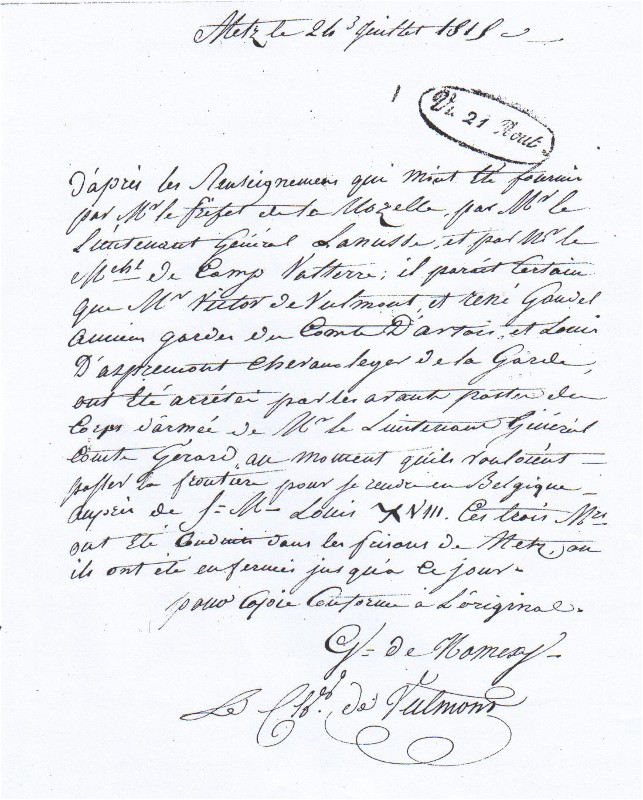 Metz le 24 Juillet 1815
Vu 21 Aout
D'après les Renseignemens qui m'ont été fournis
par Mr le Préfet de la Mozelle, par Mr le
Lieutenant Général Lanusse, et par Mr le
Mchl de Camp Vatterre; il parait Certain
que Mr Victor de Vulmont, et réné Goudel
anciens gardes du Comte D'artois, et Louis
D'aspremont Chevauxleger de la Garde,
ont été arrétéi par les avants postes du
Corps d'armée de Mr le Lieutenant Général
Comte Gérard, au moment qu'ils vouloient
passer la frontière pour se rendre en Belgique
auprès de S. M. Louis XVIII. Ces trois Mrs
ont été Conduits dans les prisons de Metz, ou
ils ont été enfermés jusqu'à Ce jour.
pour Copie Conforme à L'original.
de Nomexy
Le Ch. de Vulmont